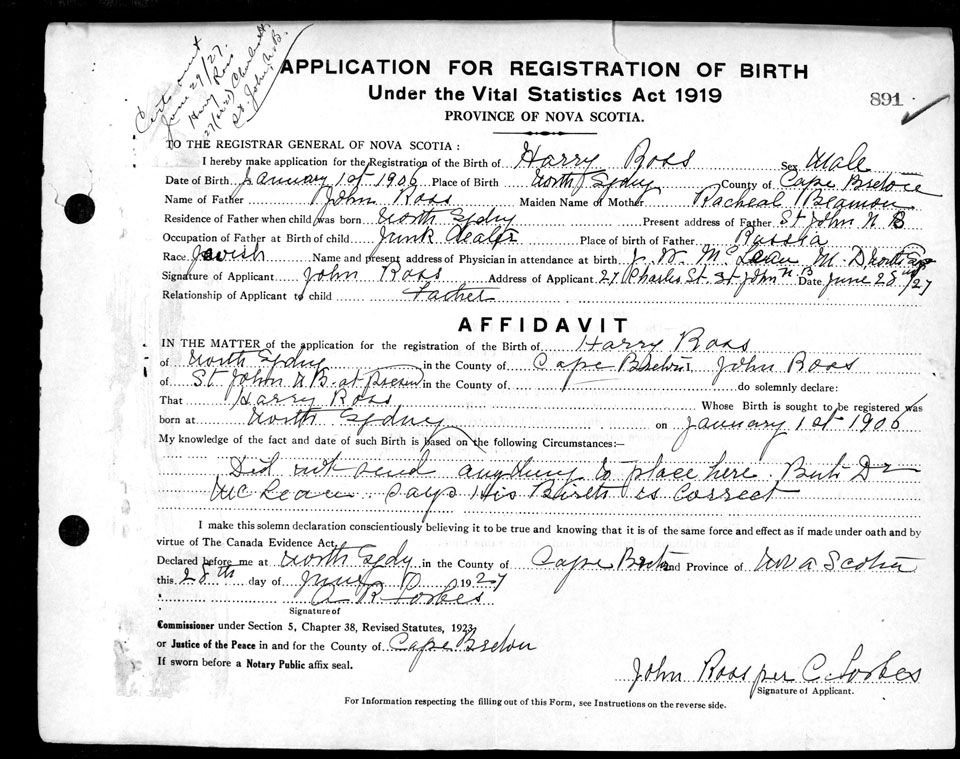 Cert out
June 29/27.
Harry Ross
27 Charles St.
St. John, N.B.
APPLICATION FOR REGISTRATION OF BIRTH
Under the Vital Statistics Act 1919
891
PROVINCE OF NOVA SCOTIA.
TO THE REGISTRAR GENERAL OF NOVA SCOTIA :
I hereby make application for the Registration of the Birth of Harry Ross Sex Male
Date of Birth January 1st 1906 Place of Birth North Sydney County of Cape Breton
Name of Father John Ross Maiden Name of Mother Racheal Beamon
Residence of Father when child was born North Sydny Present address of Father St John N B
Occupation of Father at Birth of child Junk Dealer Place of birth of Father Russia
Race Jewish Name and present address of Physician in attendance at birth J. W. McLean M D North Syd
Signature of Applicant John Ross Address of Applicant 27 Charles St. St John N.B Date June 28th/27
Relationship of Applicant to child Father
AFFIDAVIT
IN THE MATTER of the application for the registration of the Birth of Harry Ross
of North Sydny in the County of Cape Breton I, John Ross
of St John N B. at Present in the County of do solemnly declare:
That Harry Ross Whose Birth is sought to be registered was
born at North Sydney on January 1st 1906
My knowledge of the fact and date of such Birth is based on the following Circumstances:—
Did not send anything to place here. But Dr
McLean says His Birth is Correct
I make this solemn declaration conscientiously believing it to be true and knowing that it is of the same force and effect as if made under oath and by
virtue of The Canada Evidence Act.
Declared before me at North Sydy in the County of Cape Breton and Province of Nova Scotia
this 28th day of June 1927
A R Forbes
Signature of
Commissioner under Section 5, Chapter 38, Revised Statutes, 1923
or Justice of the Peace in and for the County of Cape Breton
If sworn before a Notary Public affix seal.
John Ross per C. Forbes
Signature of Applicant.
For Information respecting the filling out of this Form, see Instructions on the reverse side.